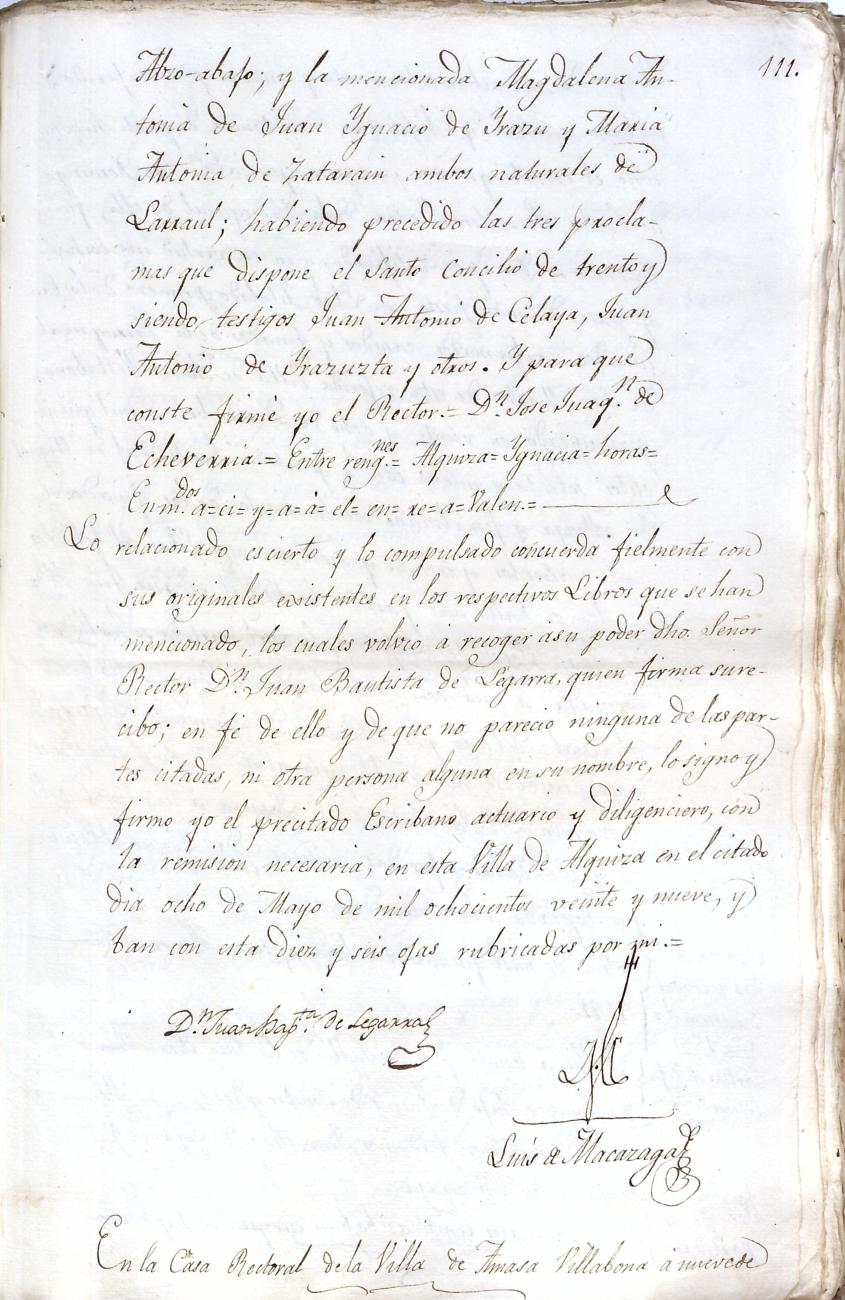 111.
Atzo-abajo; y la mencionada Magdalena An-
tonia de Juan Ygnacio de Yrazu y Maria
Antonia de Zatarain ambos naturales de
Larraul; habiendo precedido las tres procla-
mas que dispone el Santo Concilio de trento y
siendo testigos Juan Antonio de Celaya, Juan
Antonio de Yrazuzta y otros. Y para que
conste firmé yo el Rector.= Dn. Jose Juaqn. de
Echeverria.= Entre rengnes.= Alquiza= Ygnacia= horas=
Enmdos. a= ci= y= a= á= el= en= re= a= Valen.=
Lo relacionado es cierto y lo compulsado concuerda fielmente con
sus originales existentes en los respectivos Libros que se han
mencionado, los cuales volvio á recoger á su poder dho. Señor
Rector Dn. Juan Bautista de Legarra, quien firma su re-
cibo; en fé de ello y de que no parecio ninguna de las par-
tes citadas, ni otra persona alguna en su nombre, lo signo y
firmo yo el precitado Escribano actuario y diligenciero, con
la remision necesaria, en esta Villa de Alquiza en el citado
dia ocho de Mayo de mil ochocientos veinte y nueve, y
ban con esta diez y seis ojas rubricadas por mi.=
Dn. Juan Bapta. de Legarra
Luis de Macazaga
En la Casa Rectoral de la Villa de Amasa Villabona á nueve de